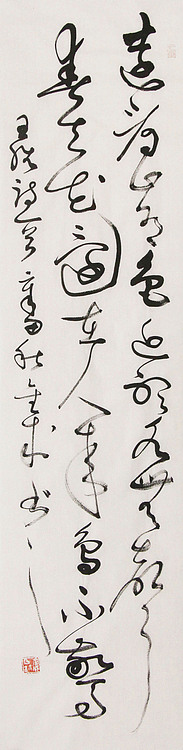 遠看山有色近聽水無聲
春去花還在人來鳥不驚
王維詩 秋 書